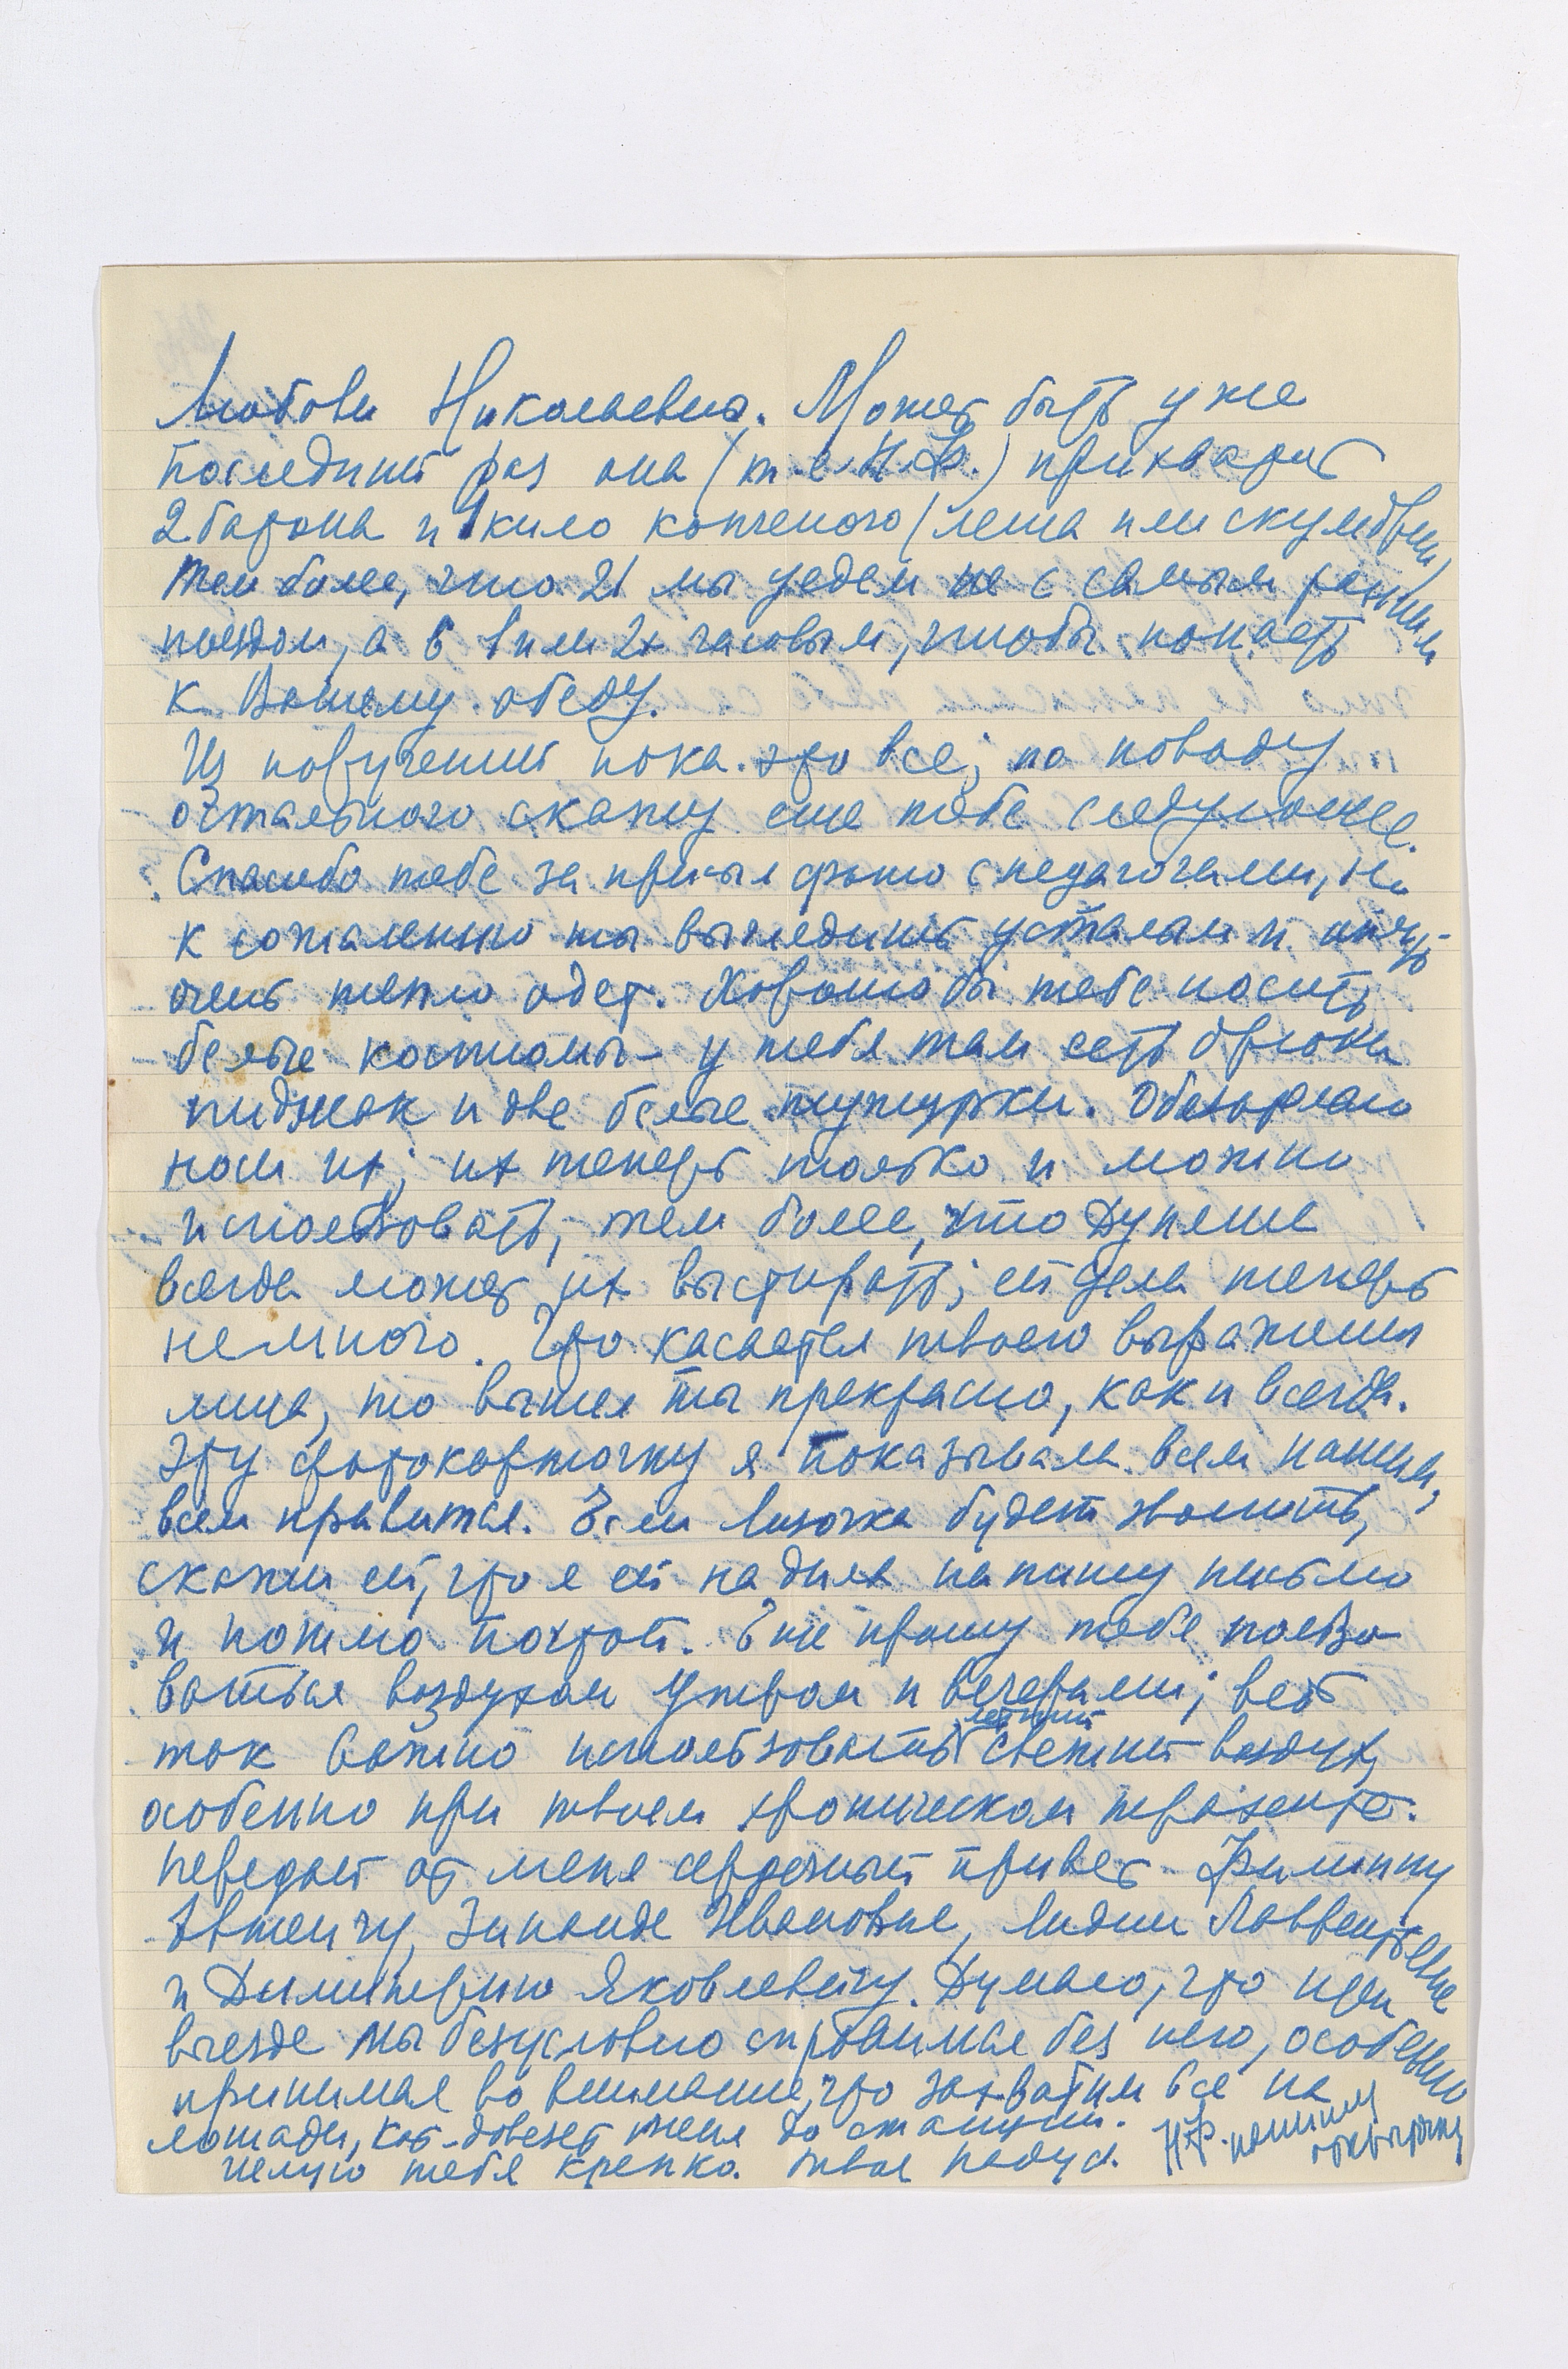 Любови Николаевны. Может быть уже
последний раз она (т.е. Н.Ф.) прихватит
2 батона и 1 кило копченого (леща или скумбрии)
тем более, что 21 мы уедем не с самым ранним
поездом, а с 1 или 2х часовым, чтобы попасть
к Вашему обеду.
Из поручений пока это все; по поводу
остального скажу еще тебе следующее.
Спасибо тебе за присыл фото с педагогами, но
к сожалению ты выглядишь усталым и
очень тепло одет. Хорошо бы тебе носить
белые костюмы – у тебя там есть брюки
пиджак и две белые тужурки. Обязательно
носи их; их теперь только и можно
использовать, тем более, что Дуняше
всегда может их выстирать; ей дела теперь
немного. Что касается твоего выражения
лица, то вышел ты прекрасно, как и всегда.
Эту фотокарточку я показывала всем нашим,
всем нравится. Если Лизочка будет звонить,
скажи ей, что я ей на днях напишу письмо
и пошлю почтой. Еще прошу тебя пользо
ваться воздухом утром и вечерами; ведь
так важно использовать летний свежий воздух,
особенно при твоем хроническом трахеите.
Передай от меня сердечный привет Филиппу
Авгеичу, Зинаиде Ивановне, Лидии Лаврентьевне
и Димитрию Яковлевичу. Думаю, что при
въезде мы безусловно справимся без него, особенно
принимая во внимание, что захватим все на
лошади, кот. довезет меня до станции.
Целую тебя крепко. Твоя Надуся.
Н.Ф. пошлем открытку